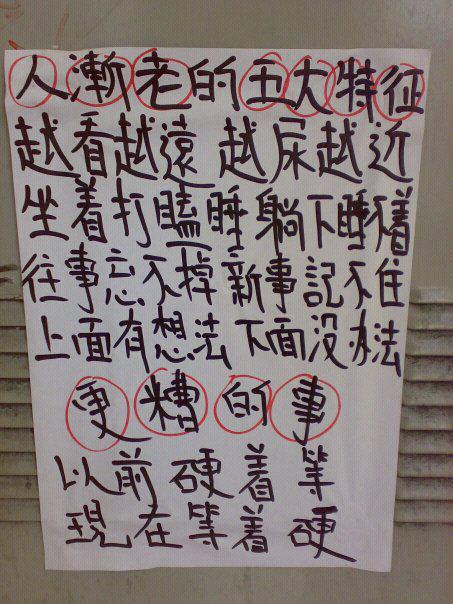 人漸老的五大特征
越看越遠 越尿越近
坐着打瞌睡 躺下睡不着
往事忘不掉 新事記不住
上面有想法 下面没办法
更糟的事
以前硬着等
現在等着硬